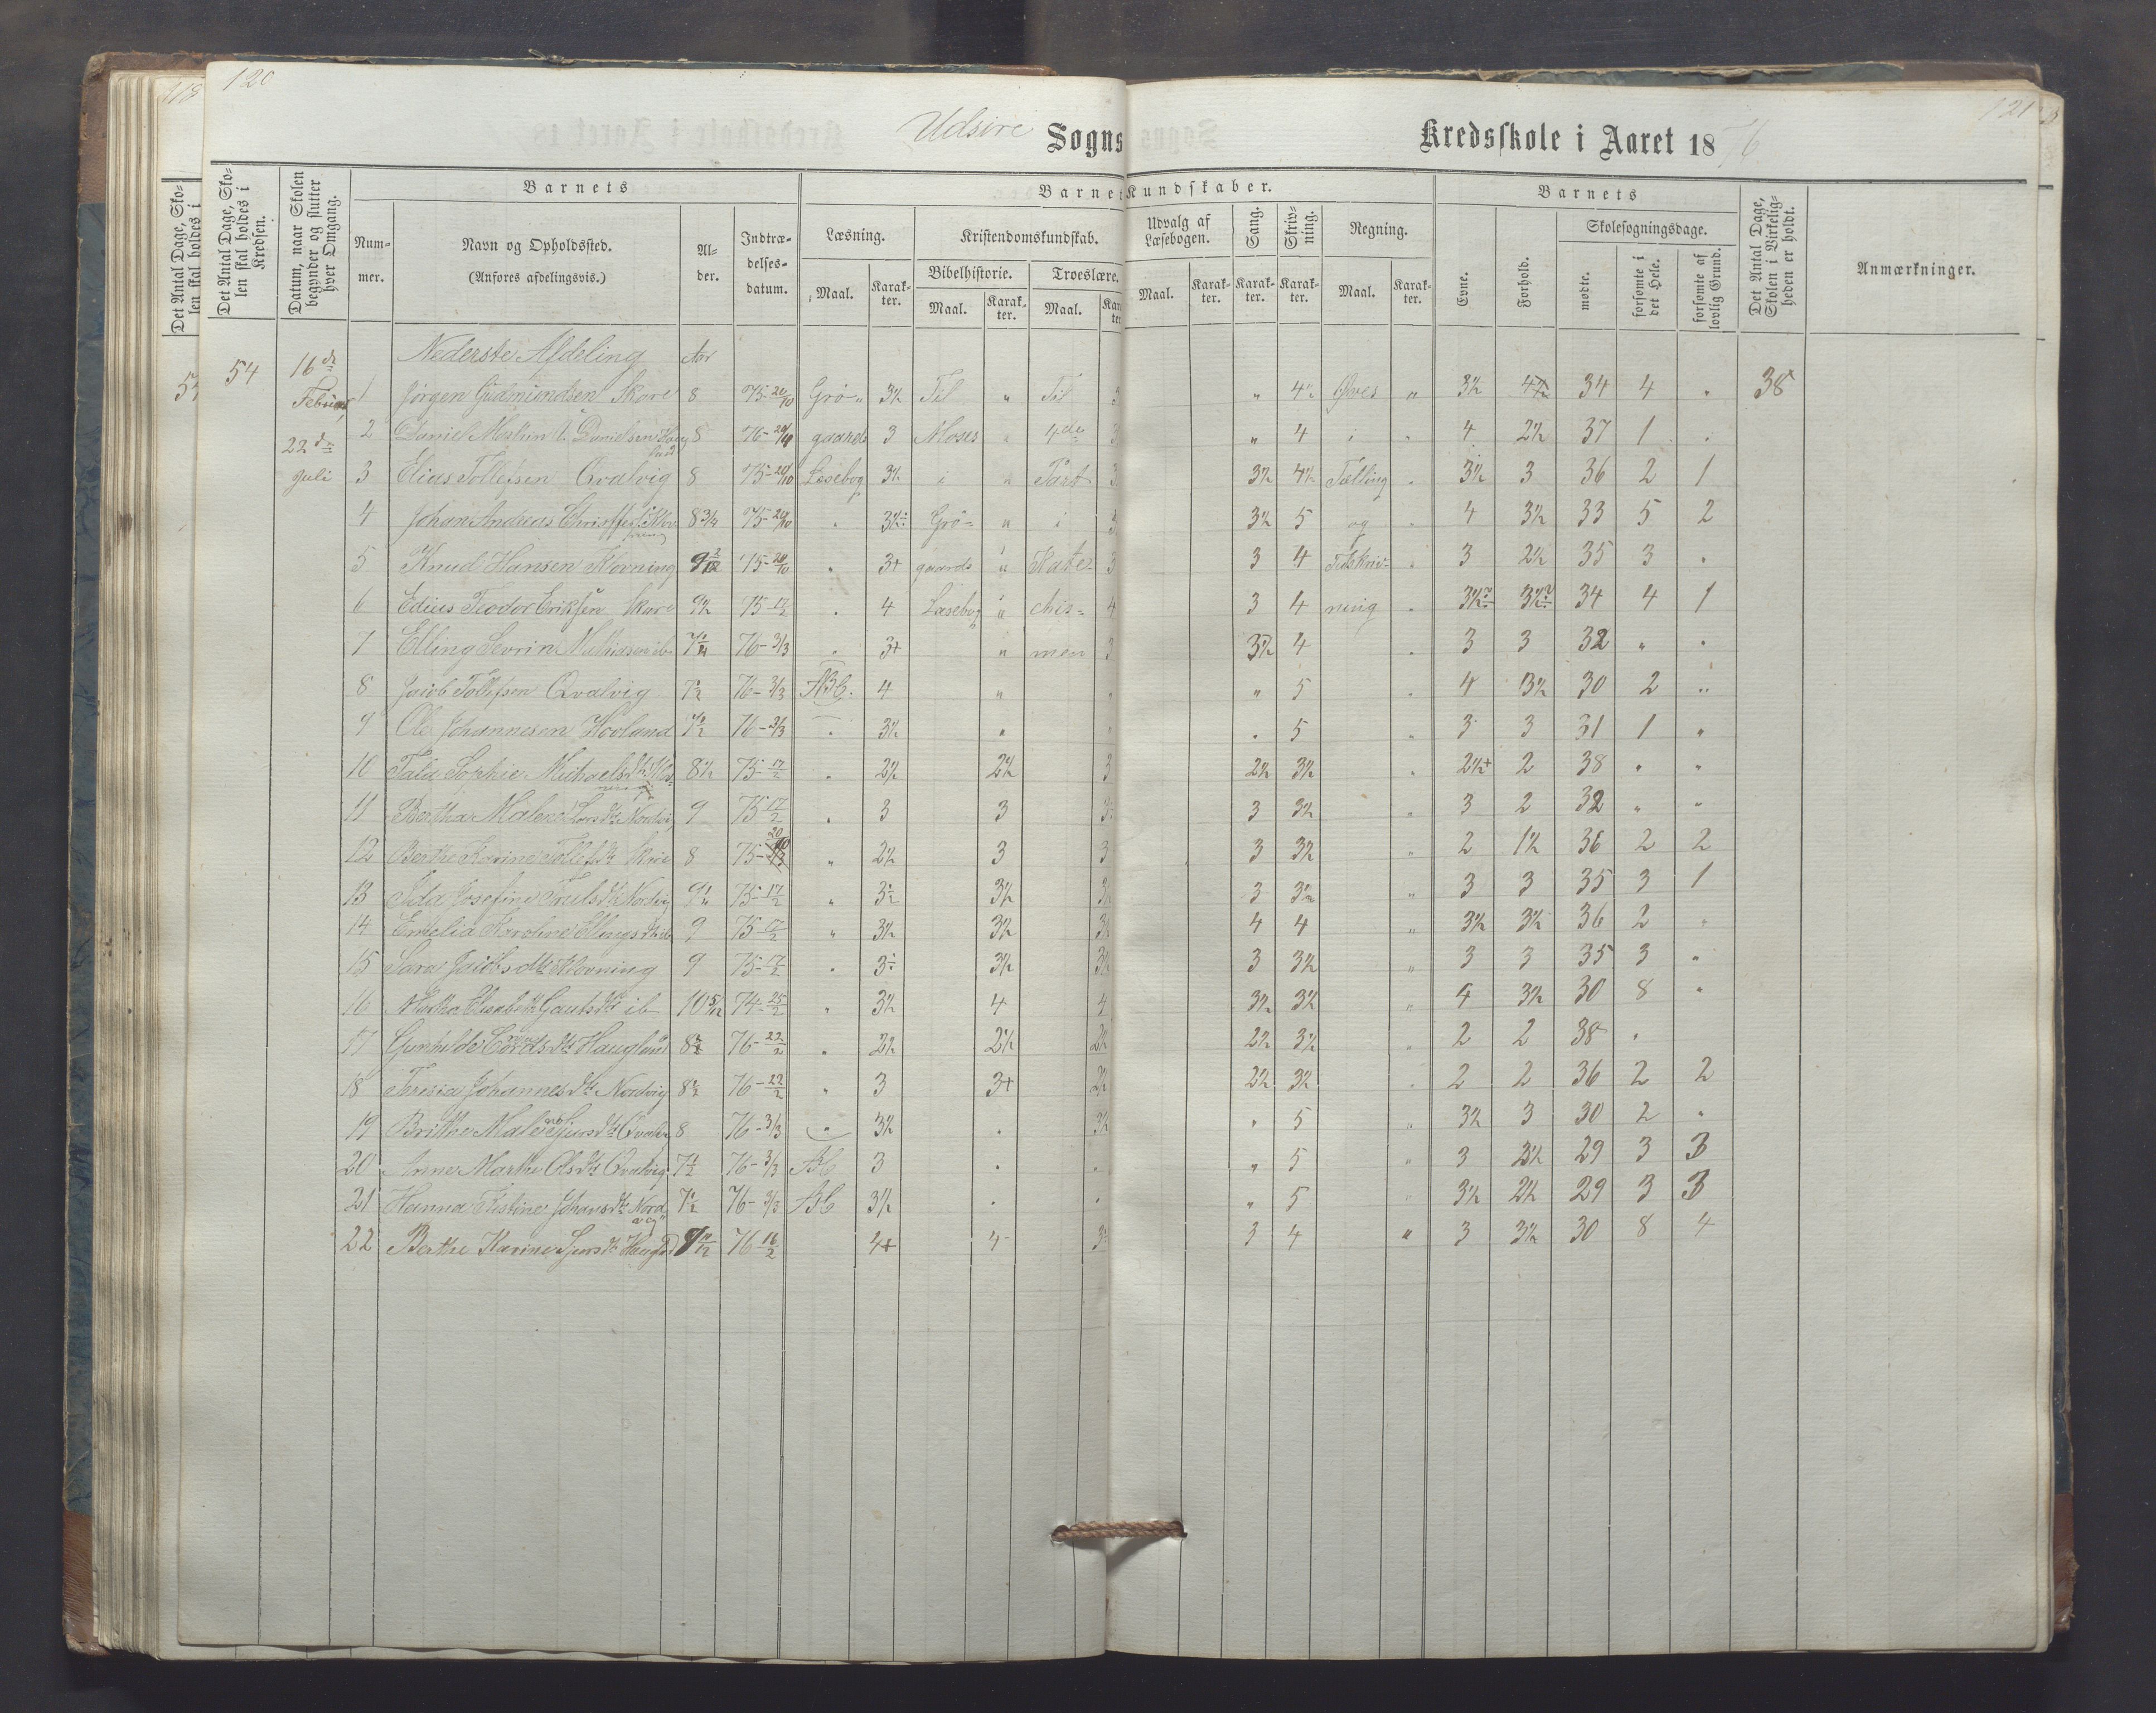 118
120
121
Udsire Sogns Kredsskole i Aaret 1876
Det Antal Dage, Skolen skal holdes i
Det Antal Dage, Skolen skal holdes i Kredsen.
Datum, naar Skolen begynder og slutter hver Omgang.
Barnets
Nummer.
Navn og Opholdssted.
(Anføres afdelingsvis.)
Alder.
Indtrædelsesdatum.
Barnets Kundskaber.
Læsning.
Maal.
Karakter.
Kristendomskundskab.
Bibelhistorie.
Maal.
Karakter.
Troeslære.
Maal.
Karakter
Udvalg af Læsebogen.
Maal.
Karakter.
Sang.
Karakter.
Skrivning.
Karakter.
Regning.
Maal.
Karakter.
Barnets
Evne.
Forhold.
Skolesøgningsdage.
mødte.
forsømte i det Hele.
forsømte af lovlig Grund.
Det Antal Dage, Skolen i Virkeligheden er holdt.
Anmærkninger.
54 16de Februar 22de Juli
Nederste Afdeling Aar
1 Jørgen Gudmundsen Skare 8 75-20/10 Grö- 3½ Til " Til 3 " 4½ Øves " 3½ 4½ 34 4 " 38
2 Daniel Danielsen 8 76-20/10 gaards 3 Moses " 4de 3 " 4 i " 4 2½ 37 1 "
3 Elias Tollefsen Qvalvig 8 75-20/10 Læsebog 3½ i " Part 3 3½ 4½ Tælling " 3½ 3 36 2 1
4 Johan Andreas 8 3/4 75-20/10 " 3½ Grö- " i 3 3½ 5 og " 4 3½ 33 5 2
5 Knud Hansen Klovning 9 2/12 75-20/10 " 3+ gaards " Kate- 3 3 4 Talskriv- " 3 2½ 35 3 "
6 Edius Teodor Eriksen Skare 9½ 75-17/2 " 4 Læsebog " chis- 4 3 4 ning " 3½ 3½ 34 4 1
7 Elling Sevrin Mathiasen ib 7½ 76-3/3 " 3+ " men 3 3½ 4 " 3 3 32 " "
8 Jacob Tollefsen Qvalvig 7½ 76-3/3 ABC. 4 " " " 5 " 4 3½ 30 2 "
9 Ole Johannesen Hovland 7½ 76-3/3 " 3½ " " " 5 " 3 3 31 1 "
10 Tala Sophie Michaelsdtr 8½ 75-17/2 " 2½ 2½ 3 2½ 3½ " 2½+ 2 38 " "
11 Bertha Malene Larsdtr Nordvig 9 75-17/2 " 3 3 3 3 3½ " 3 2 32 " "
12 Berthe Karine Tollefsdtr Skare 8 75-20/10 " 2½ 3 3 3 3½ " 2 1½ 36 2 2
13 Ida Josefine Truelsdtr Nordvig 9½ 75-17/2 " 3½ 3½ 3½ 3 3½ " 3 3 35 3 1
14 Emelia Karoline Ellingsdtr ib 9 75-17/2 " 3½ 3½ 3½ 4 4 " 3½ 3½ 36 2 "
15 Sara Jacobsdtr Klovning 9 75-17/2 " 3 3½ 3½ 3 3½ " 3 3 35 3 "
16 Martha Elisabeth Gautsdtr ib 10 5/12 74-25/2 " 3½ 4 4 3½ 3½ " 4 3½ 30 8 "
17 Gunhilde Hauglund 8½ 76-22/2 " 2½ 2½ 2½ 2½ 3½ " 2 2 38 "
18 Teresia Johannesdtr Nordvig 8½ 76-22/2 " 3 3+ 2½ 2½ 3½ " 2 2 36 2 2
19 Brithe Malene Sjursdtr Qvalvig 8 76-3/3 " 3½ " 3½ " 5 " 3½ 3 30 2 "
20 Anne Marthe Olsdtr Qvalvig 7½ 76-3/3 ABC 3 " " " 5 " 3 2½ 29 3 3
21 Hanna Kistine Johansdtr Nordvig 7½ 76-3/3 ABC 3½ " " " 5 " 3½ 2½ 29 3 3
22 Berthe Karine Sjursdtr Haugld 9 11/12 76-16/2 4+ 4 3 3 4 " 3 3½ 30 8 4